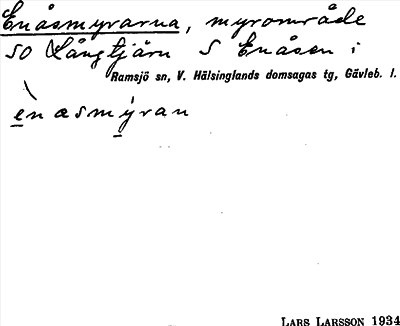 Enåsmyrarna, myrområde
SO Långtjärn S Enåsen i
Ramsjö sn, V. Hälsinglands domsagas tg, Gävleb. l.
ènasmýran
LARS LARSSON 1934